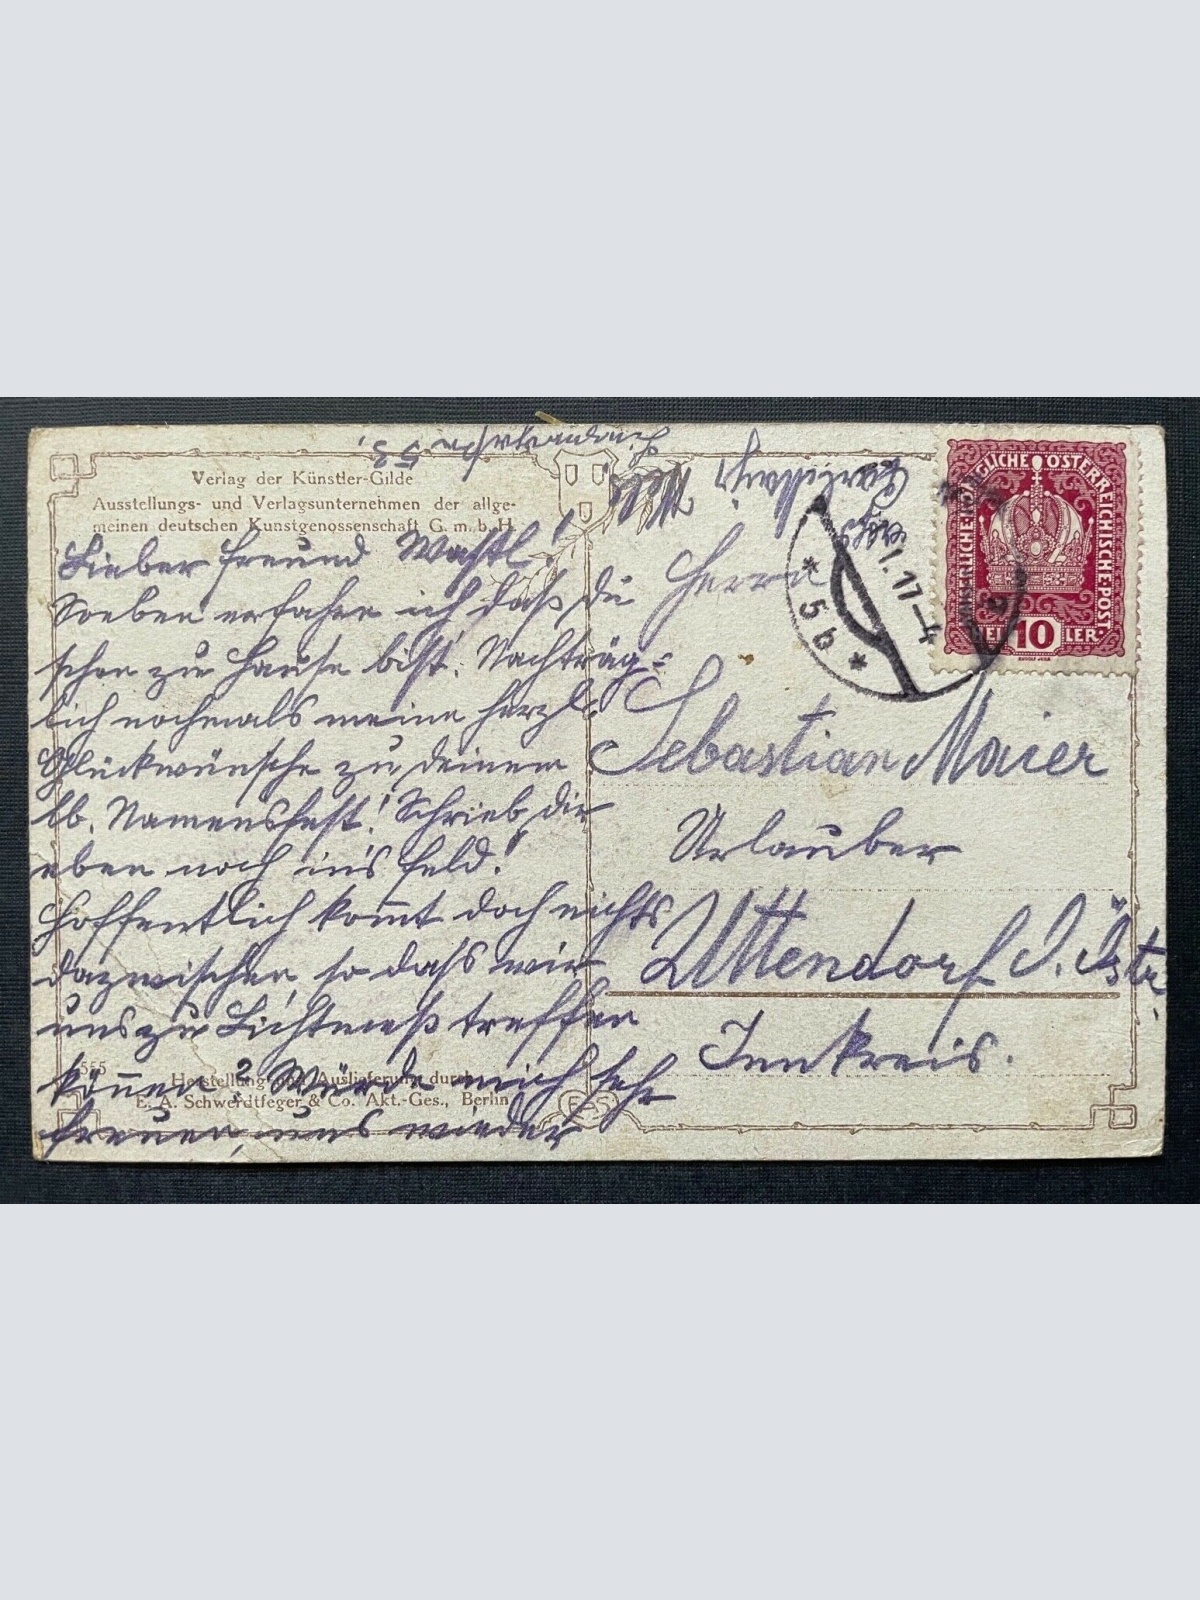 Verlag der Künstler-Gilde
Ausstellungs- und Verlagsunternehmen der allge-
meinen deutschen Kunstgenossenschaft G. m. b. H.
Lieber Freund Wastl!
Soeben erfahre ich daß du
schon zu Hause bist. Nachträg=
lich nochmals meine herzl.
Glückwünsche zu deinem
lb. Namensfest! Schrieb dir
eben noch ins Feld!
Hoffentlich kom̅t doch nichts
dazwischen, so daß wir
uns zu Lichtmeß treffen
kön̅en? Würde mich sehr
freuen, uns wieder
555
Herstellung und Auslieferung durch
E. A. Schwerdtfeger & Co. Akt.-Ges., Berlin
ES
53
KAISERLICHE KÖNIGLICHE ÖSTERREICHISCHE POST
HELLER
10
* 5b *
I. 17-4
Herrn
Sebastian Maier
Urlauber
Uttendorf O. Östr.
Innkreis.